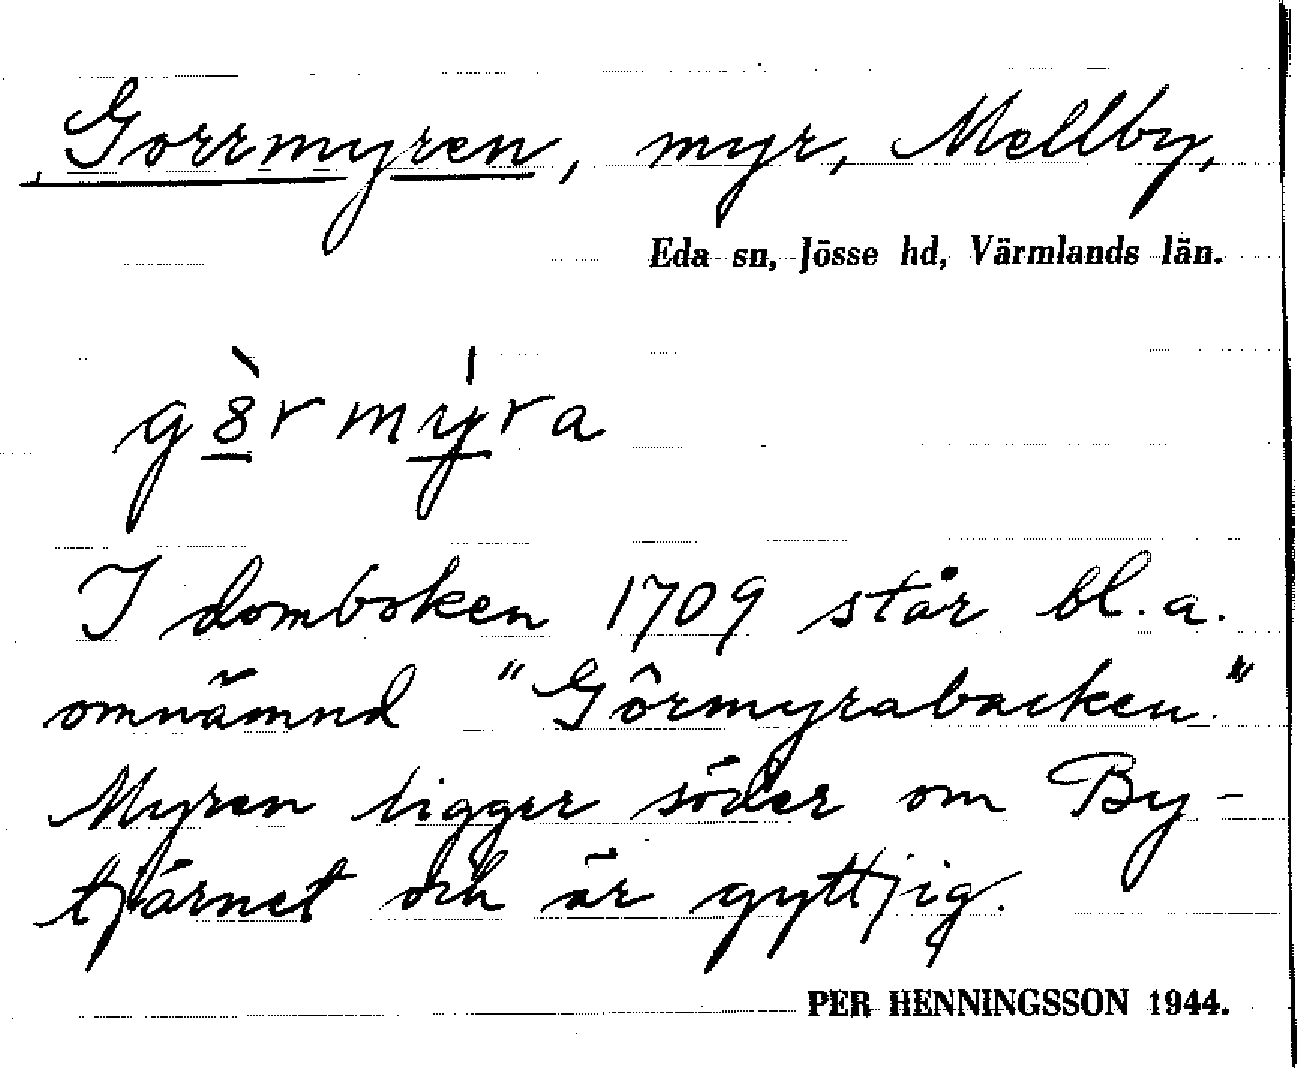 Gorrmyren, myr, Mellby,
Eda sn, Jösse hd, Värmlands län.
g8̀rmýra
I domboken 1709 står bl. a.
omnämnd "Gôrmyrabacken."
Myren ligger söder om By-
tjärnet och är gyttjig.
PER HENNINGSSON 1944.